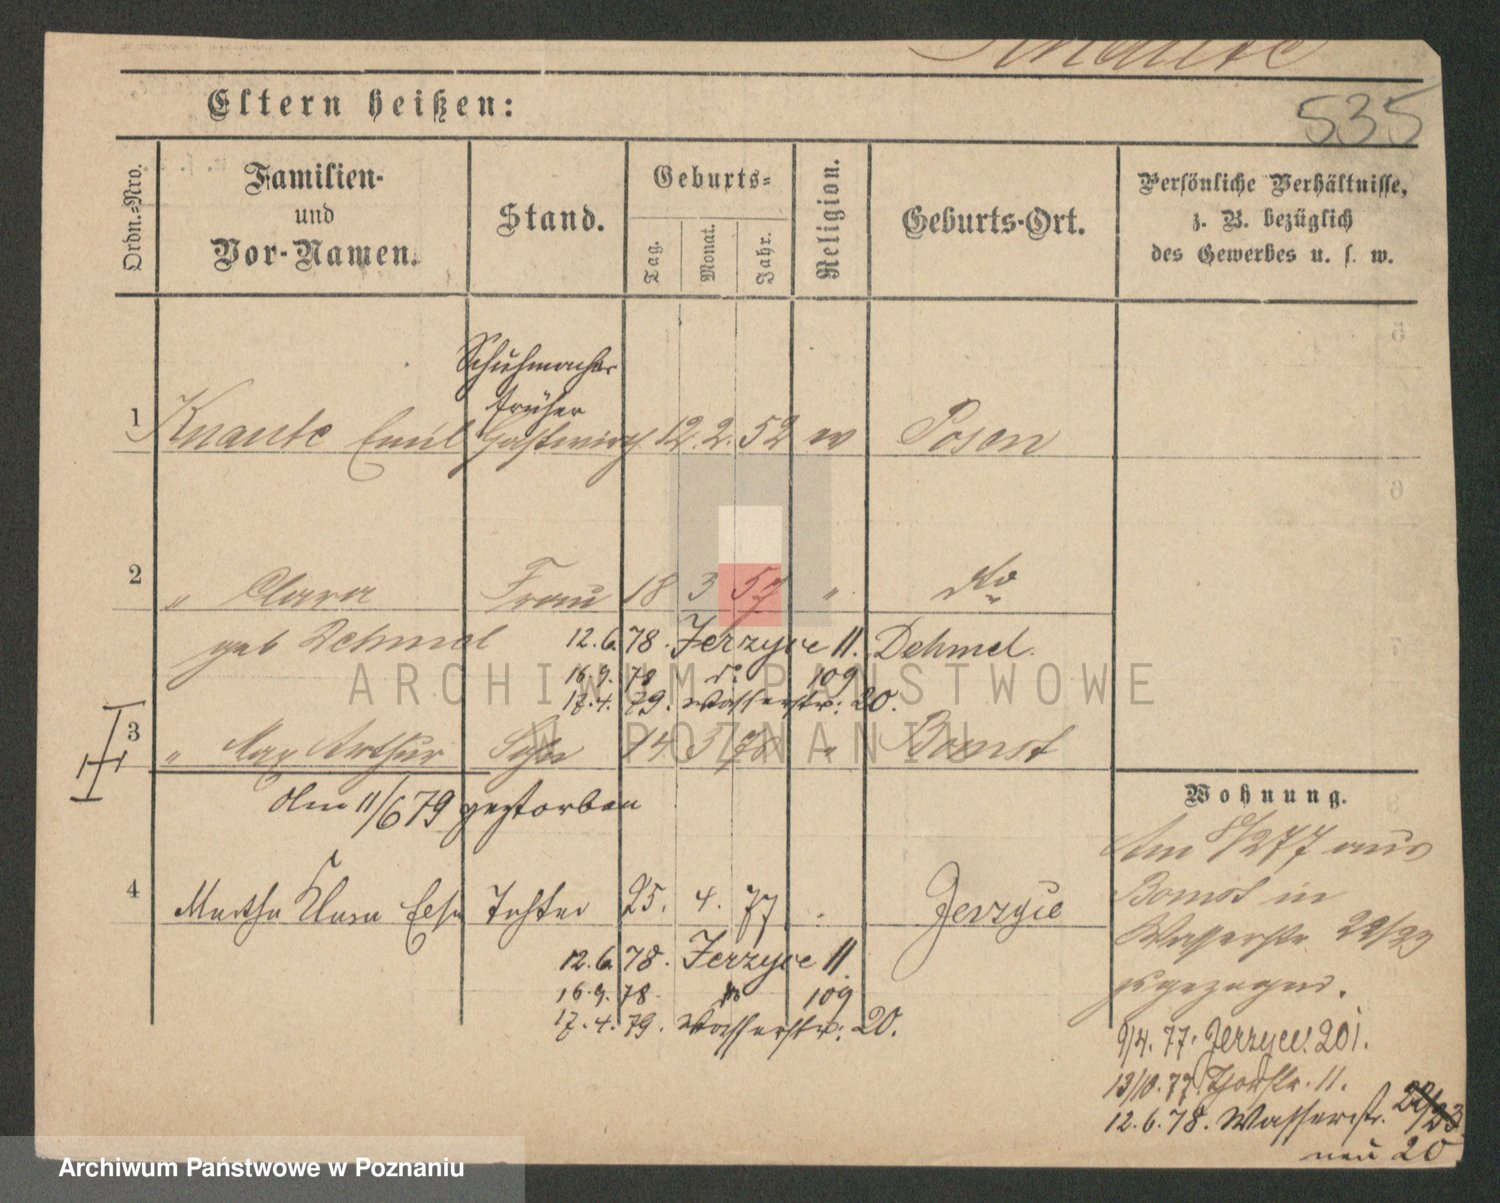 Knaute
535
Eltern heißen:
Ordn.=Nro.
Familien-
und
Vor-Namen.
Stand.
Geburts=
Tag.
Monat.
Jahr.
Religion.
Geburts-Ort.
Persönliche Verhältnisse,
z. B. bezüglich
des Gewerbes u. s. w.
Schuhmacher
früher
1 Knaute Emil Gastwirth 12. 2. 52 ev Posen
2 " Clara Frau 18 3 57 " do
geb Dehmel 12. 6. 78. Jerzyce 11. Dehmel.
16. 9. 78 do 109
17. 4. 79. Wasserstr. 20.
3 " Max Arthur Sohn 14 3 78 " Bomst
Am 11/6 79 gestorben
4 Martha Klara Elsa Tochter 25. 4. 77 . Jerzyce
12. 6. 78. Jerzyce 11.
16. 9. 78. 109
17. 4. 79. Wasserstr. 20.
Wohnung.
Am 8/2 77 aus
Bomst in
Wasserstr 22/23
zugezogen.
9/4. 77. Jerzyce 201.
13/10. 77. Thorstr. 11.
12. 6. 78. Wasserstr. 22/23
neu 20
ARCHIWUM PAŃSTWOWE
W POZNANIU
Archiwum Państwowe w Poznaniu